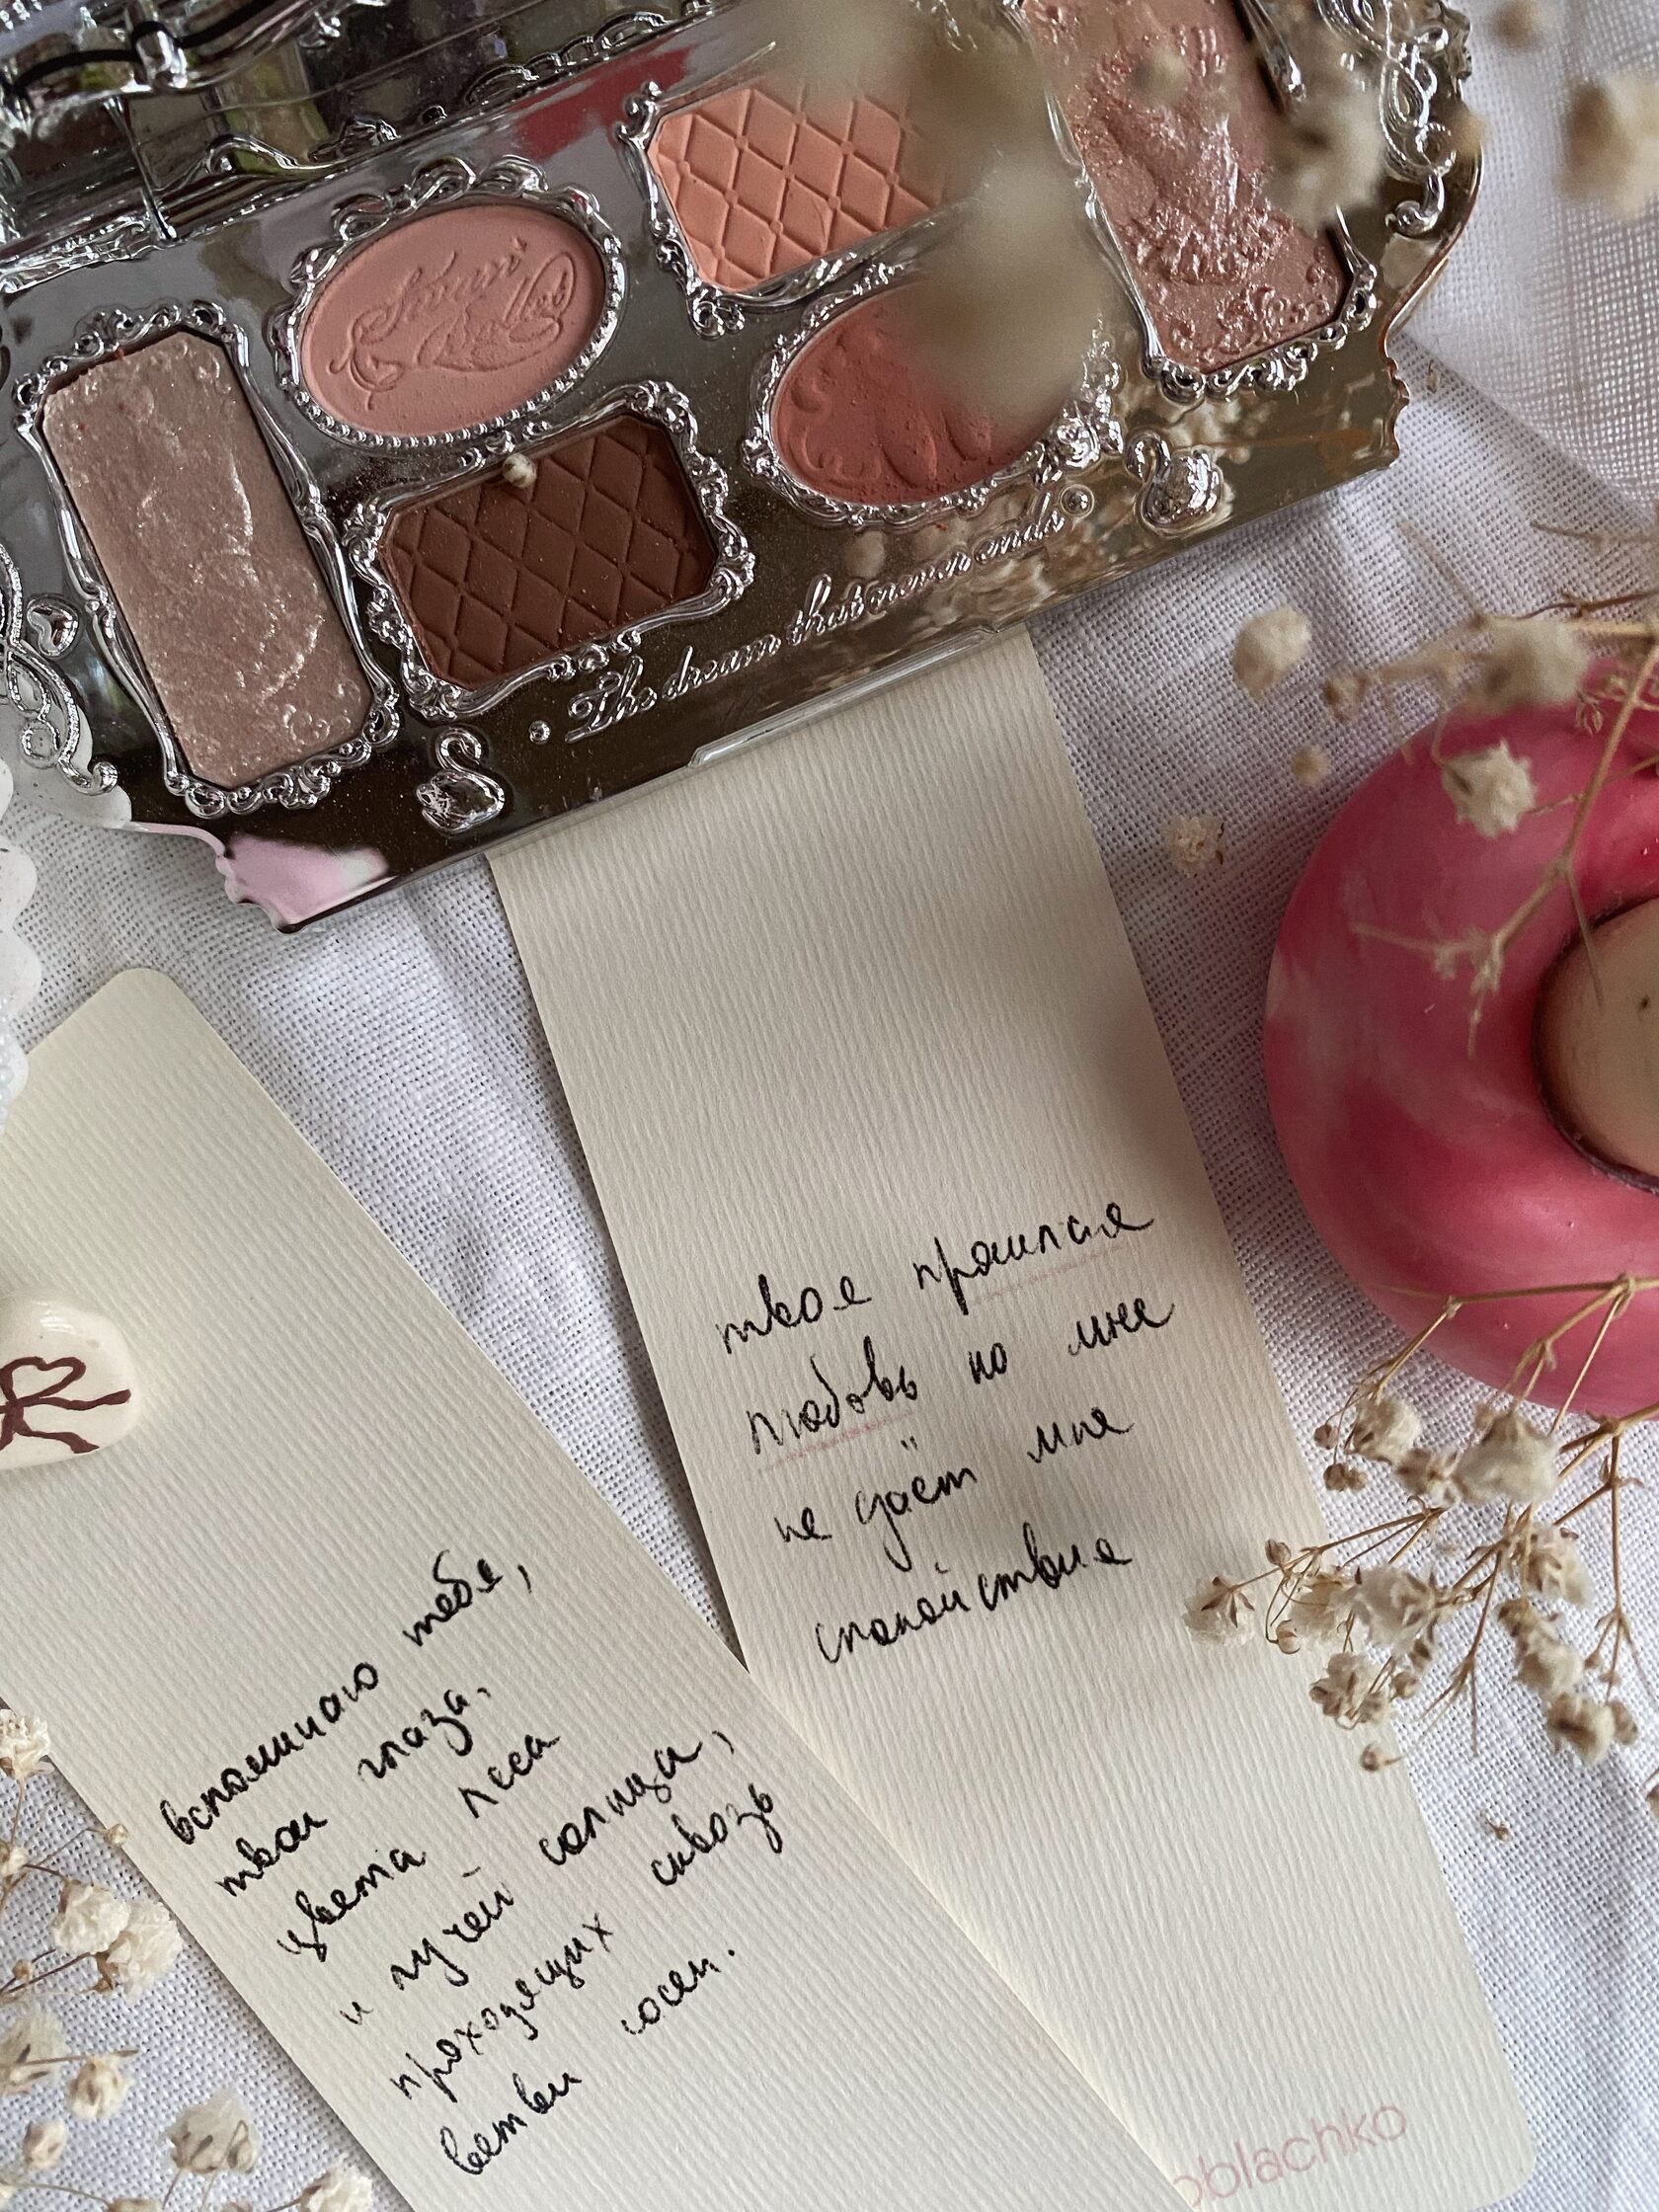 Swan Ballet
The dream that never ends
твоя прошлая
любовь ко мне
не даёт мне
спокойствия
вспоминаю тебя,
твои глаза,
цвета леса
и лучей солнца,
проходящих сквозь
ветви сосен.
oblachko